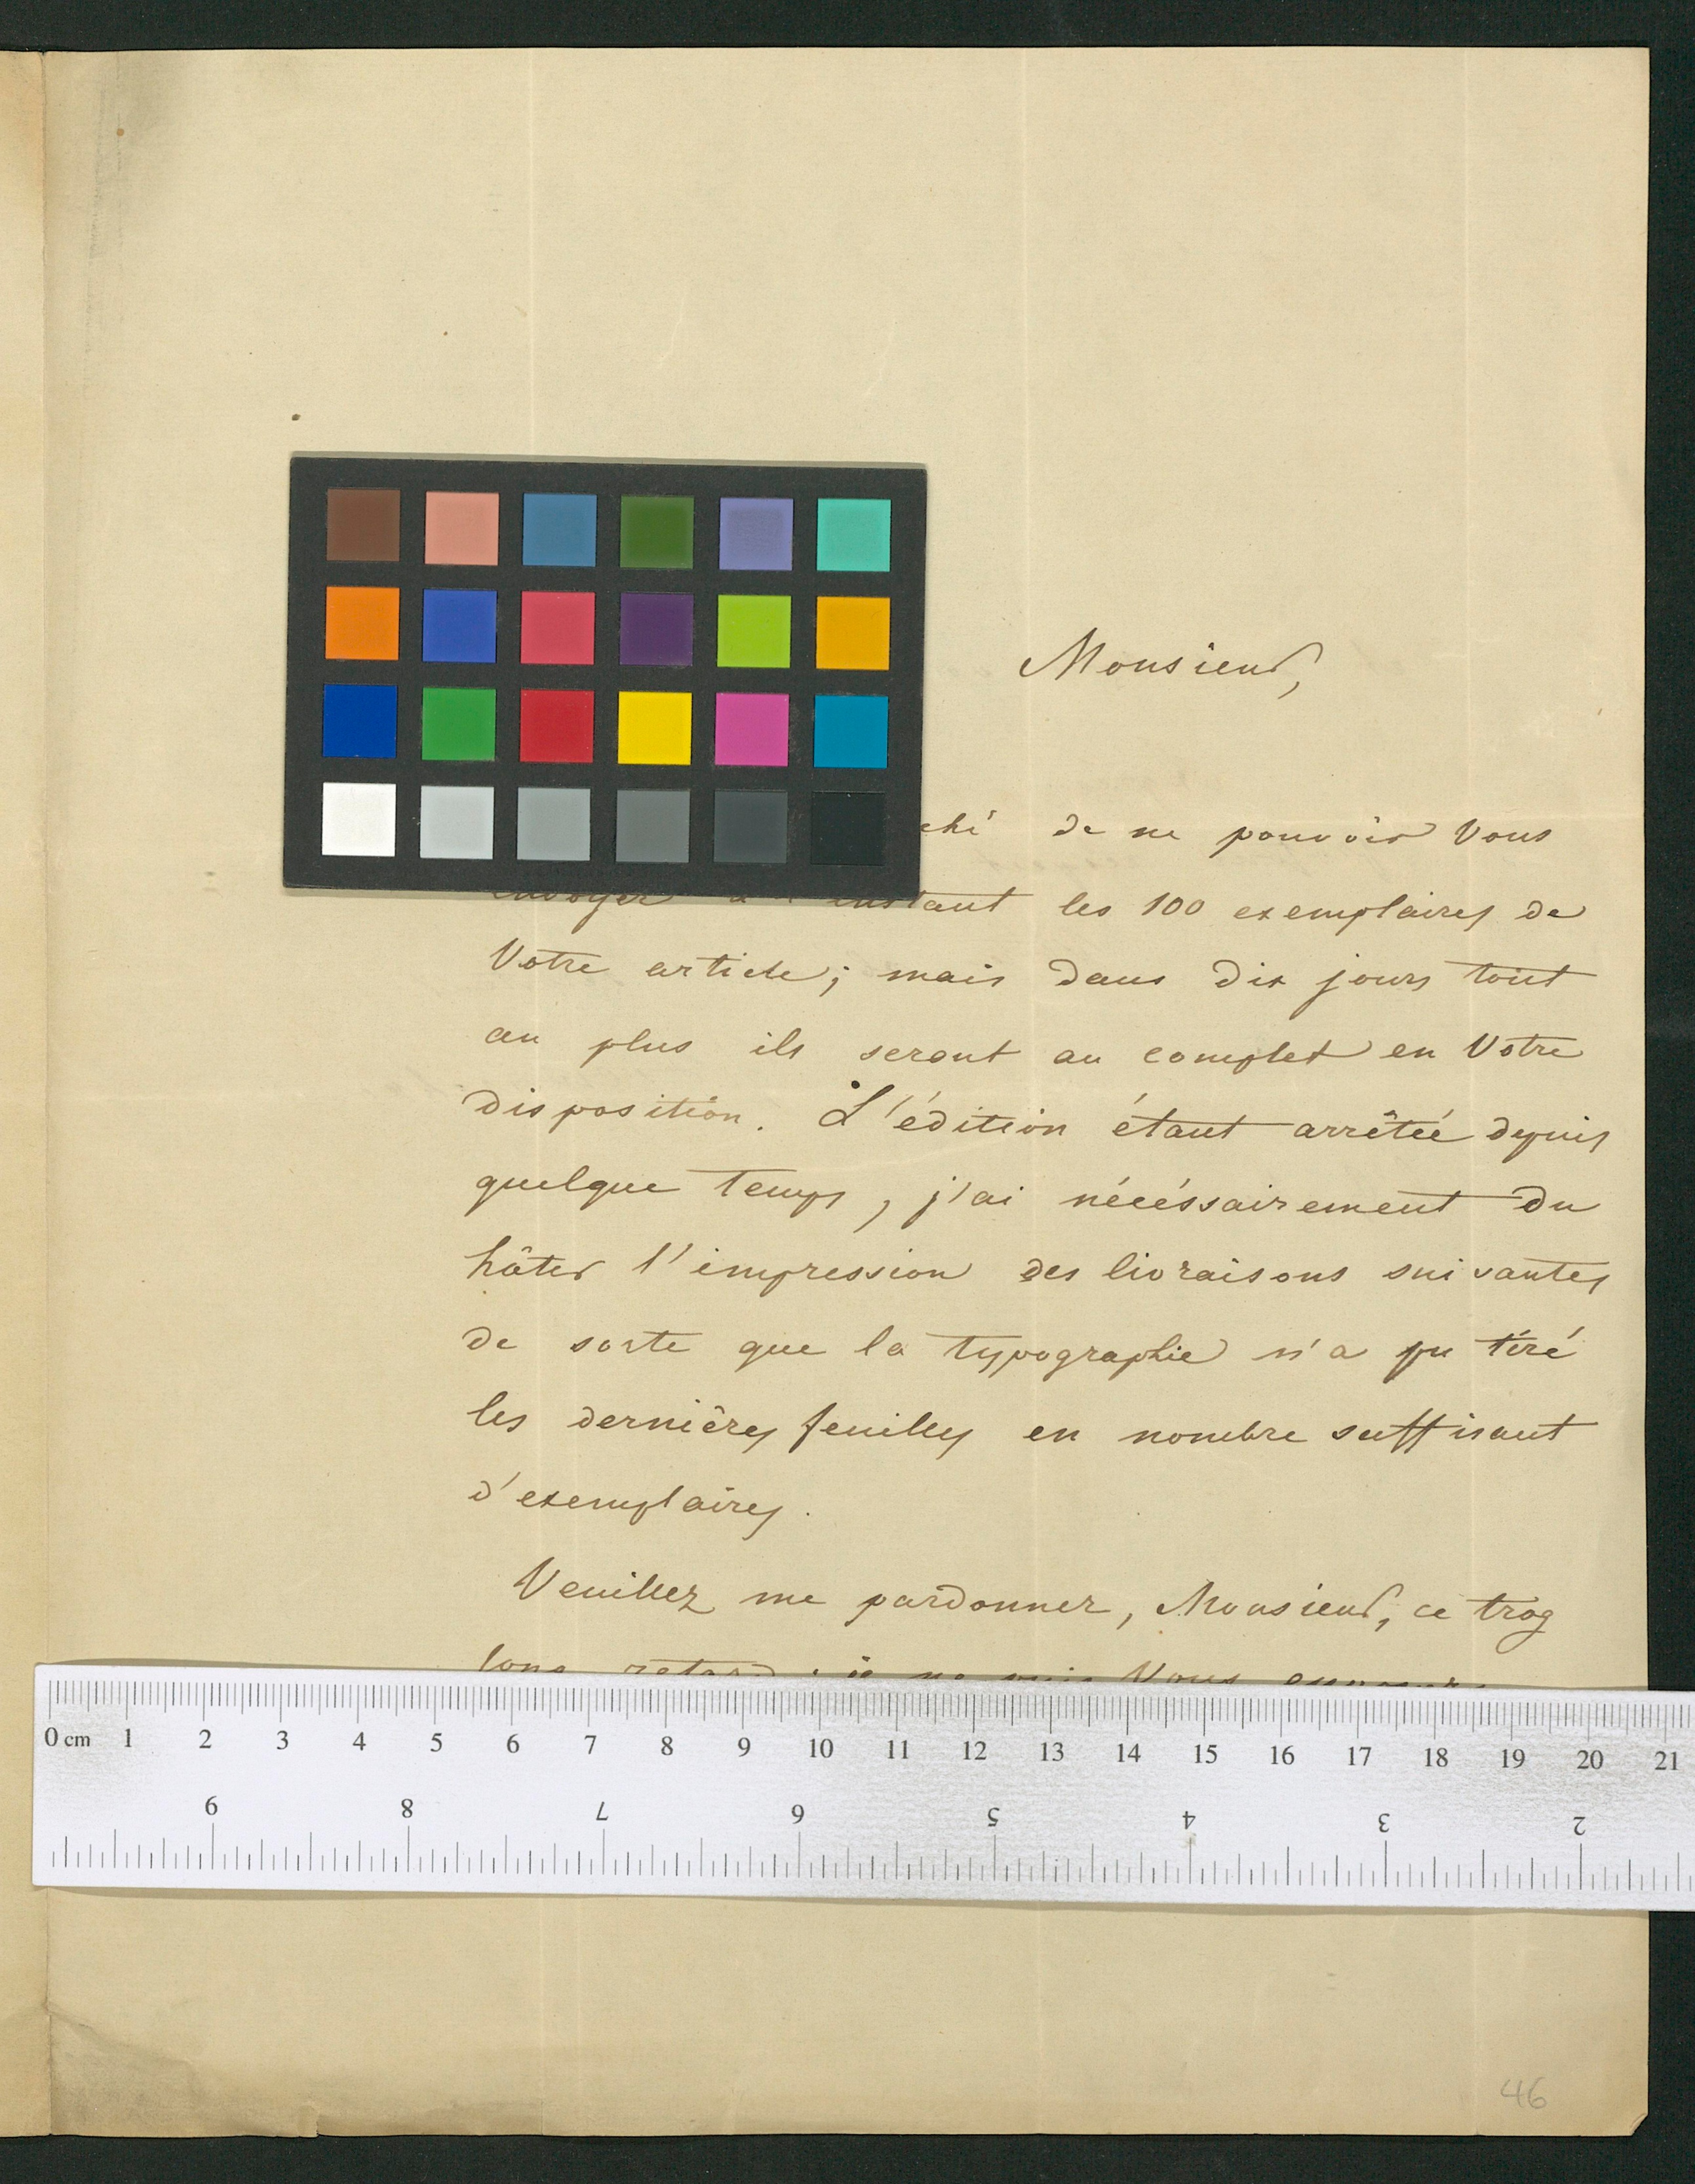 Monsieur,
de ne pouvoir Vous
envoyer instant les 100 exemplaires de
Votre article; mais dans dix jours tout
au plus ils seront au complet en Votre
disposition. L'édition étant arrêtée depuis
quelque temps, j'ai nécéssairement du
hâter l'impression des livraisons suivantes
de sorte que la typographie n'a pu tiré
les dernières feuilles en nombre suffisant
d'exemplaires.
Veuillez me pardonner, Monsieur, ce trop
long retard; je ne puis Vous
0 cm 1 2 3 4 5 6 7 8 9 10 11 12 13 14 15 16 17 18 19 20 21
9 8 7 6 5 4 3 2
46